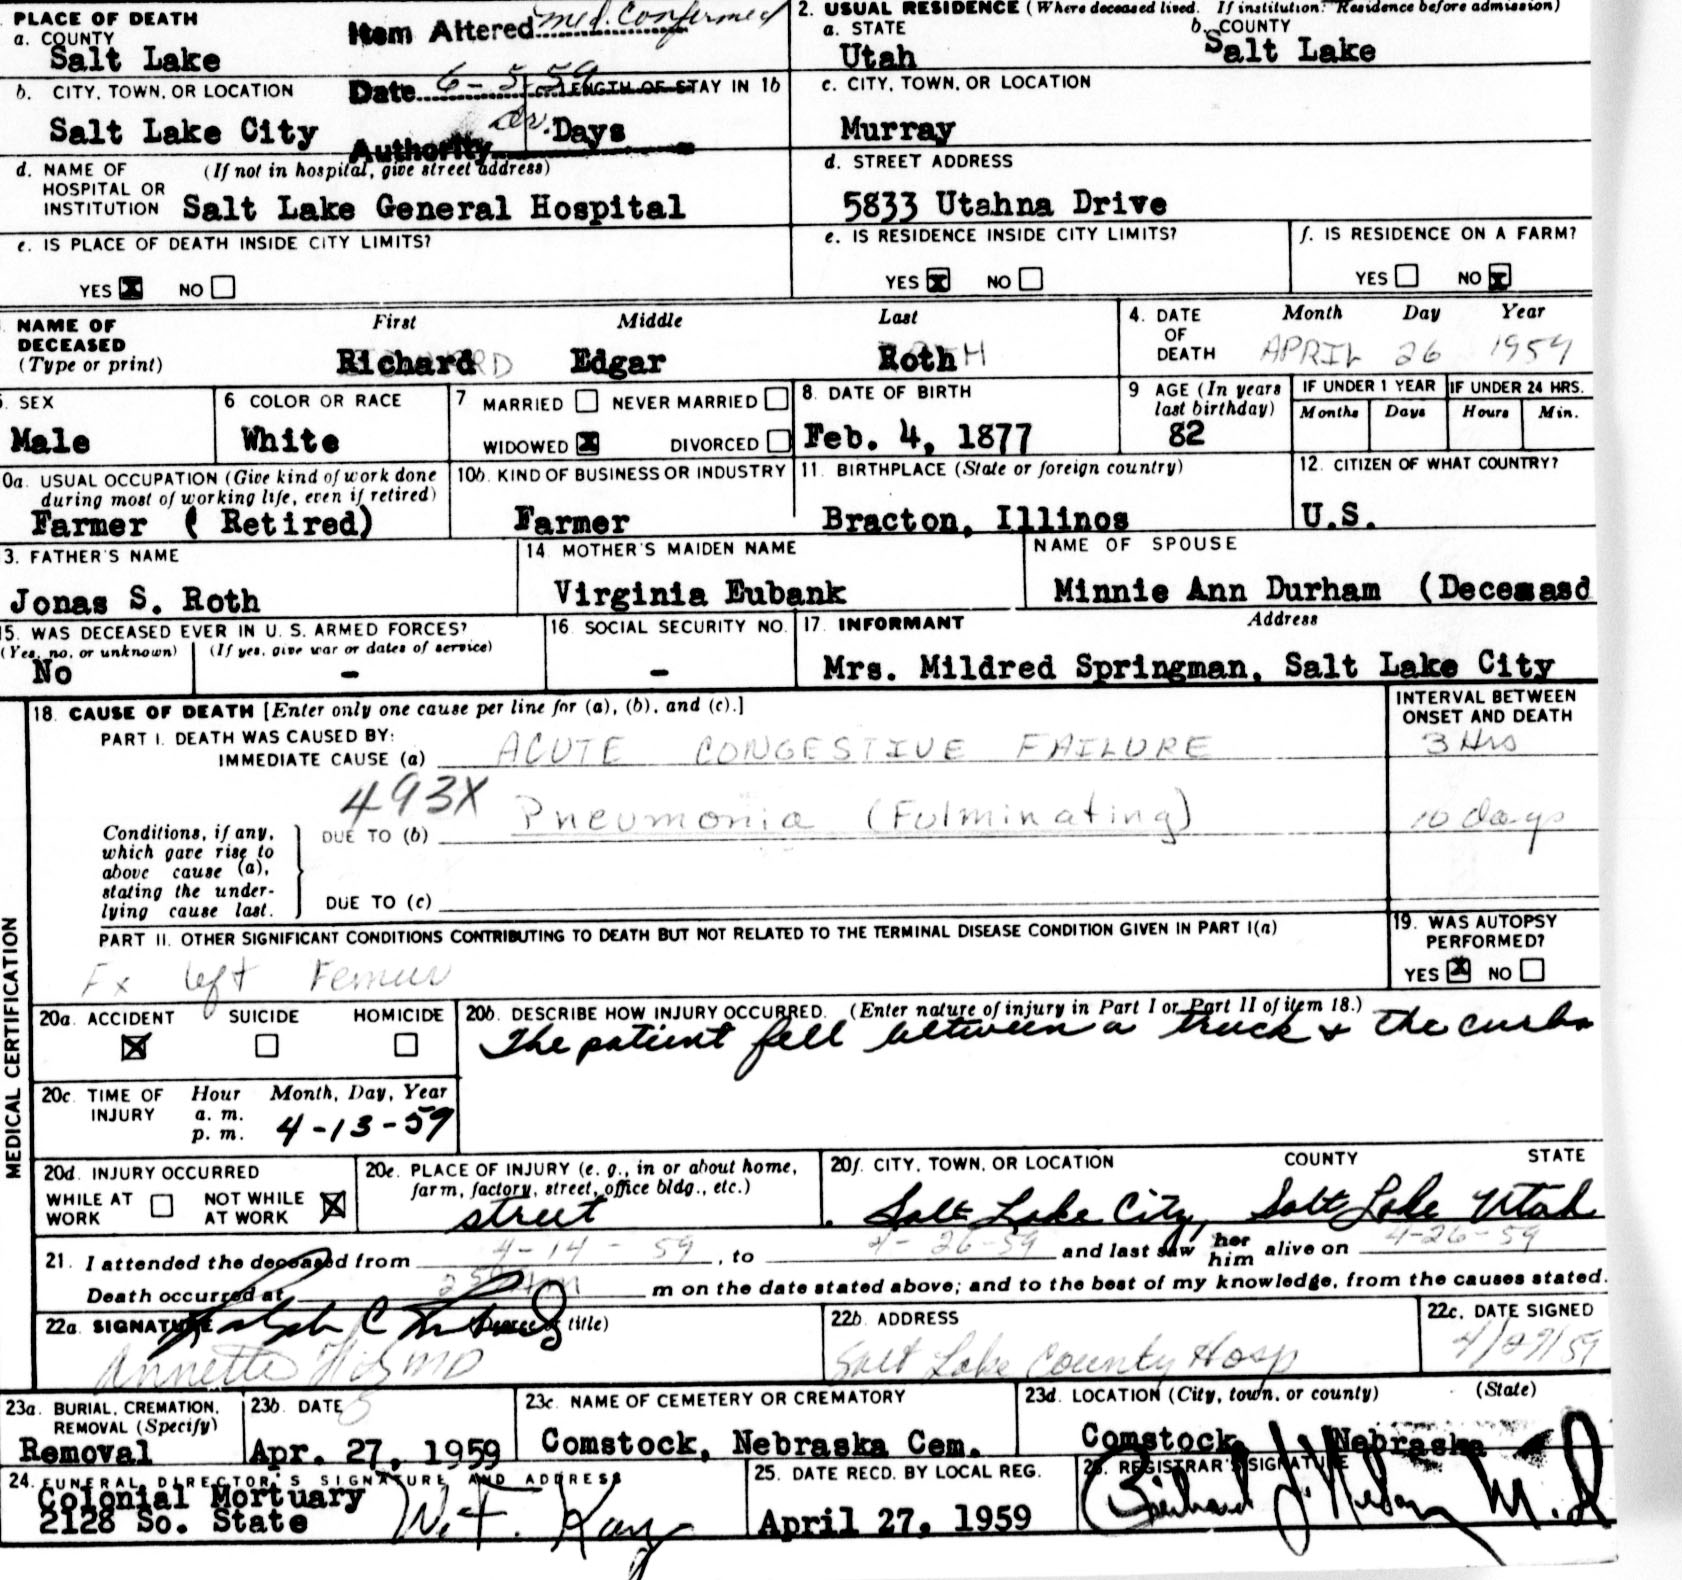 PLACE OF DEATH
a. COUNTY
Salt Lake
Item Altered med. Confirmed
Date 6-5-59
Authority
2. USUAL RESIDENCE (Where deceased lived. If institution: Residence before admission)
a. STATE
Utah
b. COUNTY
Salt Lake
b. CITY, TOWN, OR LOCATION
Salt Lake City
LENGTH OF STAY IN 1b
Days
c. CITY, TOWN, OR LOCATION
Murray
d. NAME OF HOSPITAL OR INSTITUTION
(If not in hospital, give street address)
Salt Lake General Hospital
d. STREET ADDRESS
5833 Utahna Drive
e. IS PLACE OF DEATH INSIDE CITY LIMITS?
YES X NO
e. IS RESIDENCE INSIDE CITY LIMITS?
YES X NO
f. IS RESIDENCE ON A FARM?
YES NO X
NAME OF DECEASED
(Type or print)
First Middle Last
Richard Edgar Roth
4. DATE OF DEATH
Month Day Year
APRIL 26 1959
5. SEX
Male
6 COLOR OR RACE
White
7 MARRIED NEVER MARRIED
WIDOWED X DIVORCED
8. DATE OF BIRTH
Feb. 4, 1877
9 AGE (In years last birthday)
82
IF UNDER 1 YEAR
Months Days
IF UNDER 24 HRS.
Hours Min.
0a. USUAL OCCUPATION (Give kind of work done during most of working life, even if retired)
Farmer ( Retired)
10b. KIND OF BUSINESS OR INDUSTRY
Farmer
11. BIRTHPLACE (State or foreign country)
Bracton, Illinos
12. CITIZEN OF WHAT COUNTRY?
U.S.
3. FATHER'S NAME
Jonas S. Roth
14. MOTHER'S MAIDEN NAME
Virginia Eubank
NAME OF SPOUSE
Minnie Ann Durham (Deceased
15. WAS DECEASED EVER IN U. S. ARMED FORCES?
(Yes, no, or unknown) (If yes, give war or dates of service)
No -
16. SOCIAL SECURITY NO.
-
17. INFORMANT Address
Mrs. Mildred Springman, Salt Lake City
MEDICAL CERTIFICATION
18. CAUSE OF DEATH [Enter only one cause per line for (a), (b), and (c).]
PART I. DEATH WAS CAUSED BY:
IMMEDIATE CAUSE (a) ACUTE CONGESTIVE FAILURE
INTERVAL BETWEEN ONSET AND DEATH
3 Hrs
493X
Conditions, if any, which gave rise to above cause (a), stating the underlying cause last.
DUE TO (b) Pneumonia (Fulminating)
10 days
DUE TO (c)
PART II. OTHER SIGNIFICANT CONDITIONS CONTRIBUTING TO DEATH BUT NOT RELATED TO THE TERMINAL DISEASE CONDITION GIVEN IN PART I(a)
Fx left Femur
19. WAS AUTOPSY PERFORMED?
YES X NO
20a. ACCIDENT SUICIDE HOMICIDE
X
20b. DESCRIBE HOW INJURY OCCURRED. (Enter nature of injury in Part I or Part II of item 18.)
The patient fell between a truck & the curb
20c. TIME OF INJURY
Hour Month, Day, Year
a. m.
p. m. 4-13-59
20d. INJURY OCCURRED
WHILE AT WORK NOT WHILE AT WORK X
20e. PLACE OF INJURY (e. g., in or about home, farm, factory, street, office bldg., etc.)
street
20f. CITY, TOWN, OR LOCATION COUNTY STATE
Salt Lake City, Salt Lake Utah
21. I attended the deceased from 4-14-59, to 4-26-59 and last saw her him alive on 4-26-59
Death occurred at m on the date stated above; and to the best of my knowledge, from the causes stated.
22a. SIGNATURE (Degree or title)
Ralph C
Annette MD
22b. ADDRESS
Salt Lake County Hosp
22c. DATE SIGNED
4/27/59
23a. BURIAL, CREMATION, REMOVAL (Specify)
Removal
23b. DATE
Apr. 27, 1959
23c. NAME OF CEMETERY OR CREMATORY
Comstock, Nebraska Cem.
23d. LOCATION (City, town, or county) (State)
Comstock, Nebraska
24. FUNERAL DIRECTOR'S SIGNATURE AND ADDRESS
Colonial Mortuary
2128 So. State
25. DATE RECD. BY LOCAL REG.
April 27, 1959
26. REGISTRAR'S SIGNATURE
Richard M.D.